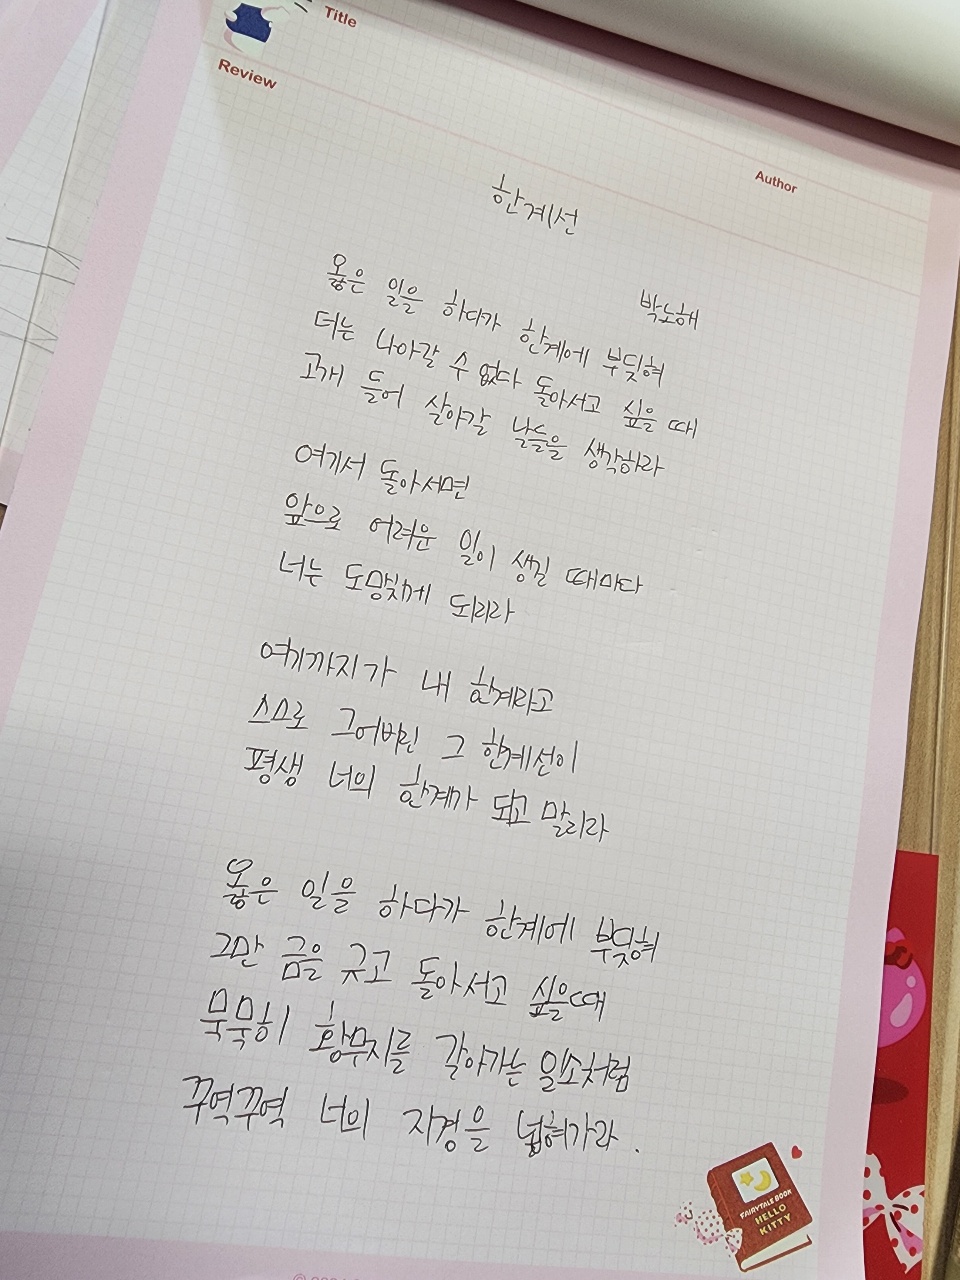 Title
Review
Author
한계선
박노해
옳은 일을 하다가 한계에 부딪혀
더는 나아갈 수 없다 돌아서고 싶을 때
고개 들어 살아갈 날들을 생각하라
여기서 돌아서면
앞으로 어려운 일이 생길 때마다
너는 도망치게 되리라
여기까지가 내 한계라고
스스로 그어버린 그 한계선이
평생 너의 한계가 되고 말리라
옳은 일을 하다가 한계에 부딪혀
그만 금을 긋고 돌아서고 싶을 때
묵묵히 황무지를 갈아가는 일소처럼
꾸역꾸역 너의 지경을 넓혀가라.
FAIRYTALE BOOK
HELLO
KITTY